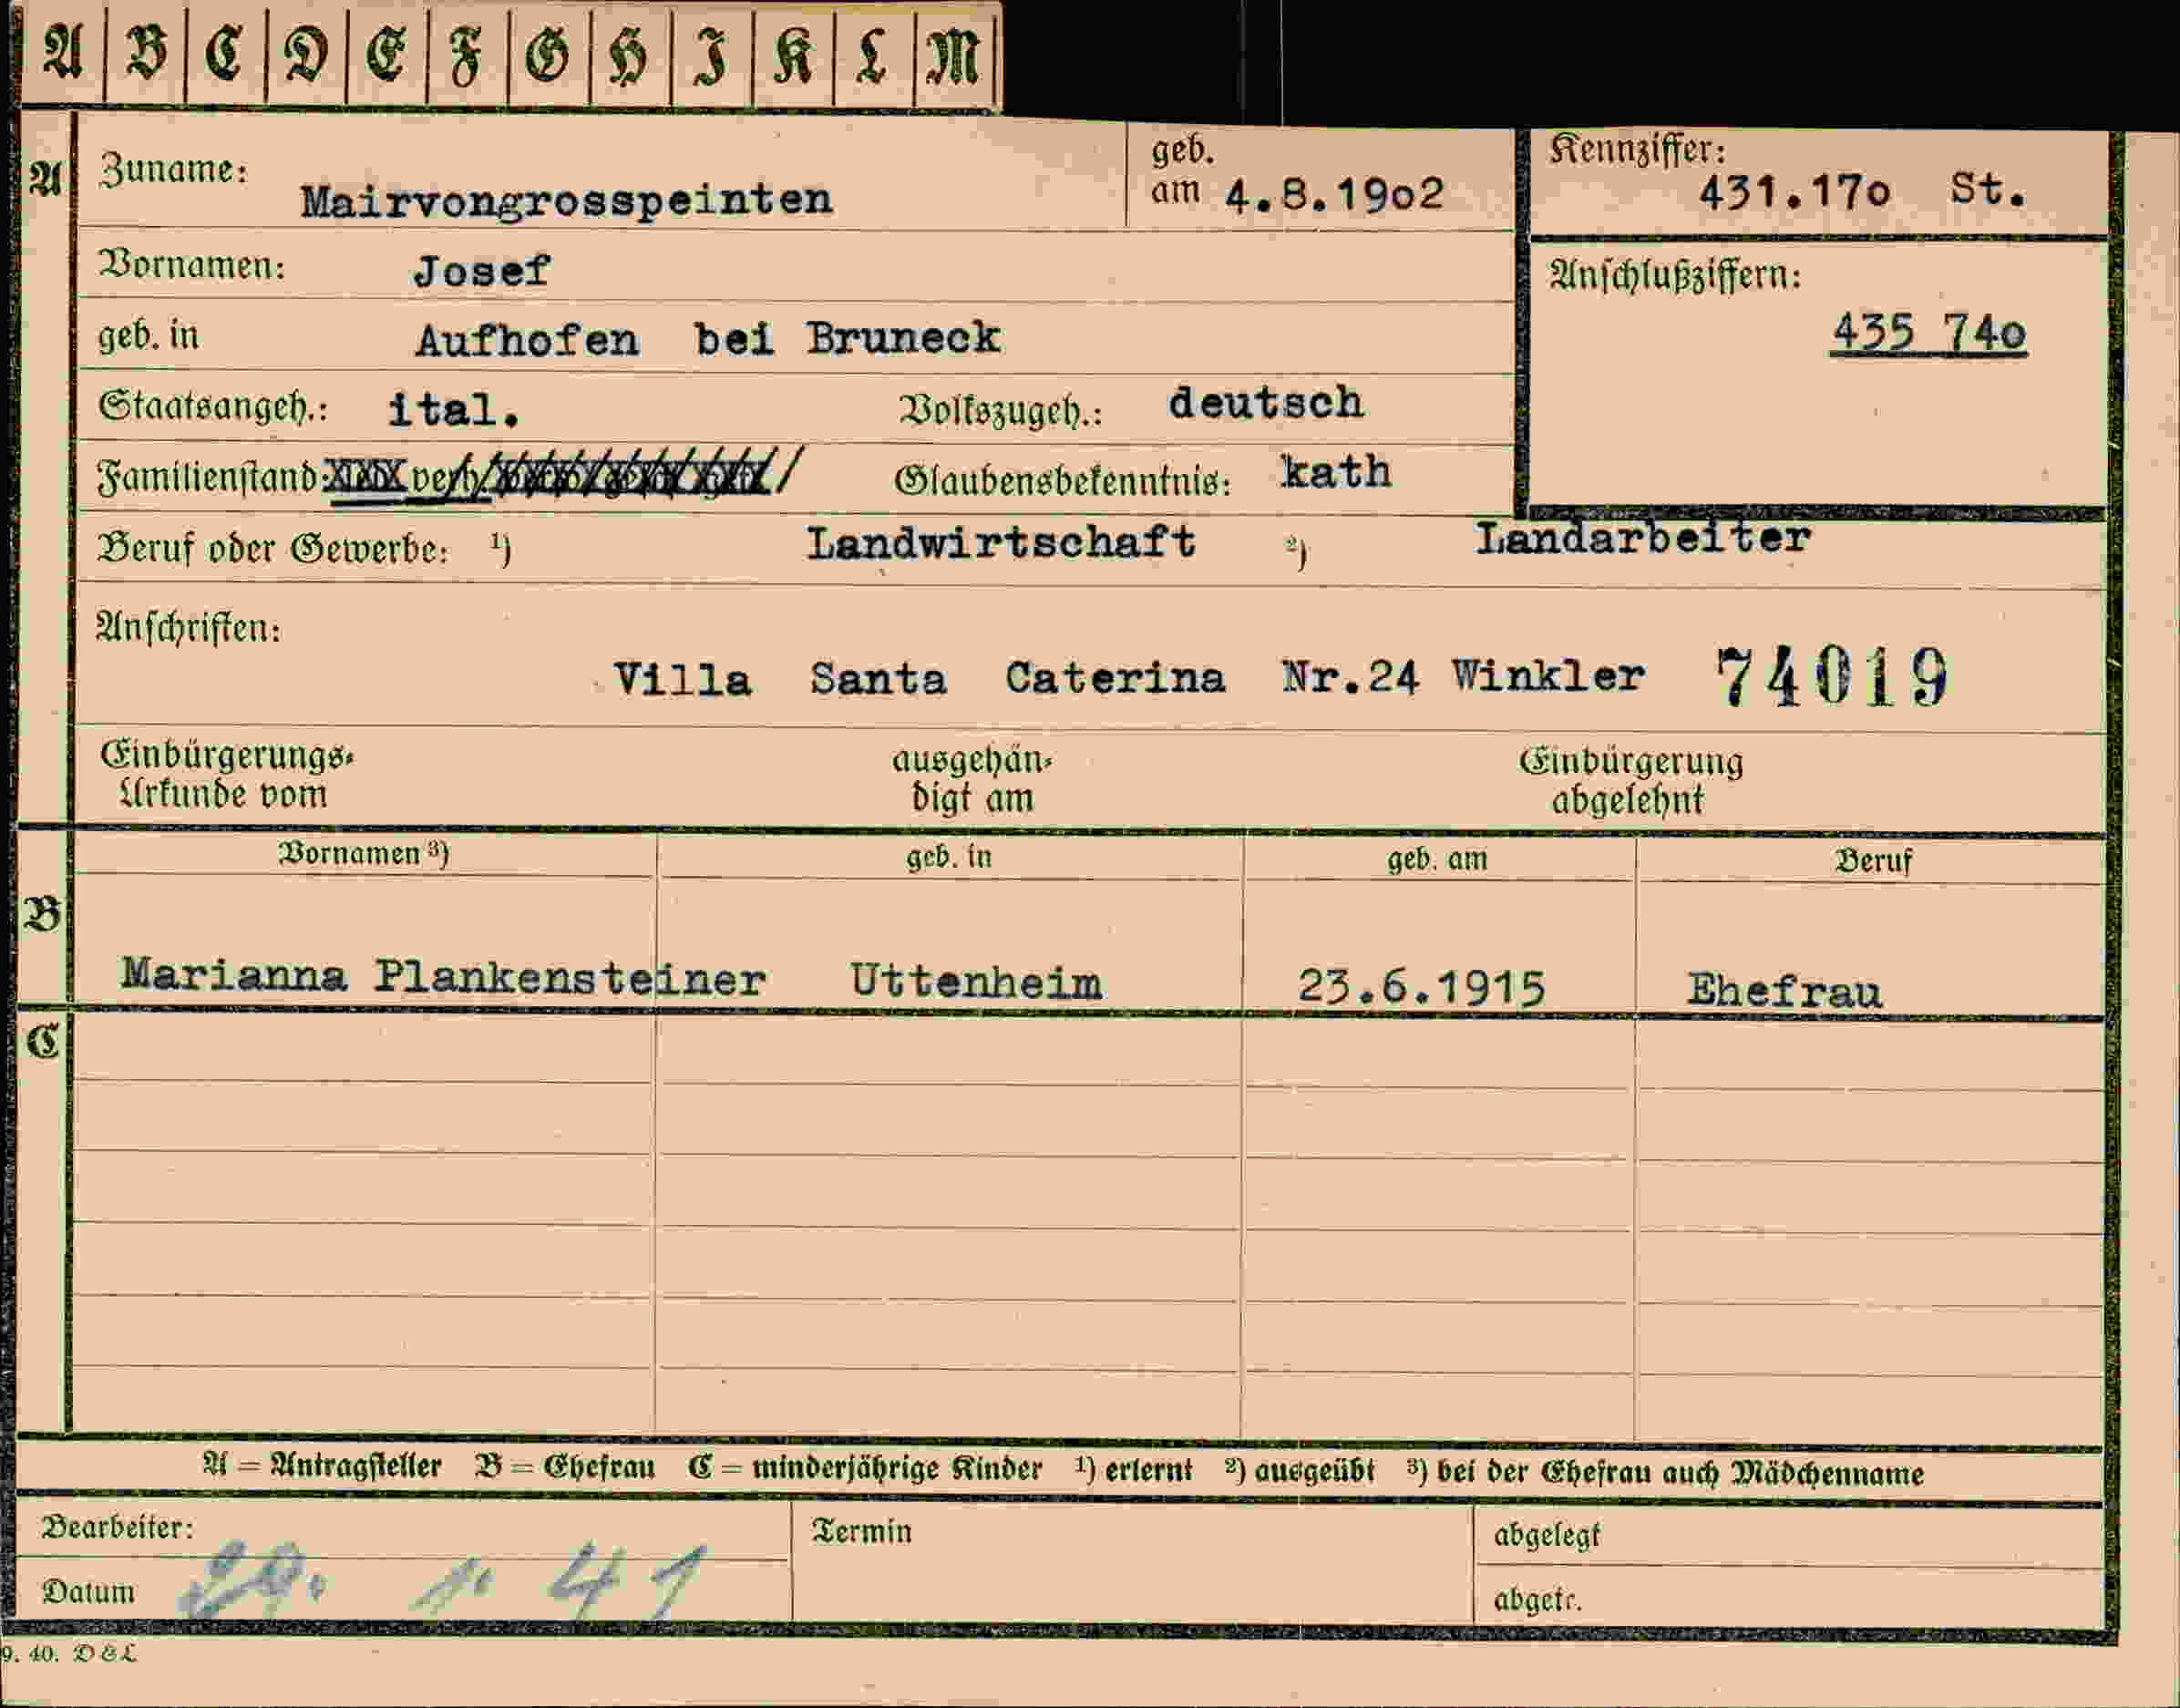 A B C D E F G H I K L M
A Zuname: Mairvongrosspeinten geb. am 4.8.19o2 Kennziffer: 431.17o St.
Vornamen: Josef Anschlußziffern:
geb. in Aufhofen bei Bruneck 435 74o
Staatsangeh.: ital. Volkszugeh.: deutsch
Familienstand: verh/ Glaubensbekenntnis: kath
Beruf oder Gewerbe: ¹) Landwirtschaft ²) Landarbeiter
Anschriften:
Villa Santa Caterina Nr.24 Winkler 74019
Einbürgerungs- ausgehän- Einbürgerung
Urkunde vom digt am abgelehnt
Vornamen ³) geb. in geb. am Beruf
B
Marianna Plankensteiner Uttenheim 23.6.1915 Ehefrau
C
A = Antragsteller B = Ehefrau C = minderjährige Kinder ¹) erlernt ²) ausgeübt ³) bei der Ehefrau auch Mädchenname
Bearbeiter: Termin abgelegt
Datum 29. 1. 41 abgetr.
9. 40. D & L